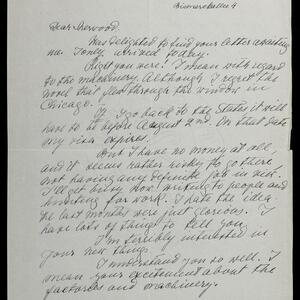 Dear Sherwood.
Was delighted to find your letter awaiting
me. I only arrived today.
Right you were! I mean with regard
to the machinery. Although I regret the
novel that flew through the window in
Chicago.
If I go back to the States it will
have to be before August 2nd. On that date
my visa expires.
But I have no money at all,
and it seems rather risky to go there
not having any definite job in view.
I'll get busy now writing to people and
hunting for work. I hate the idea.
The last months were just glorious. I
have lots of things to tell you.
I'm terribly interested in
your new thing.
I understand you so well. I
mean your excitement about the
factories and machinery.